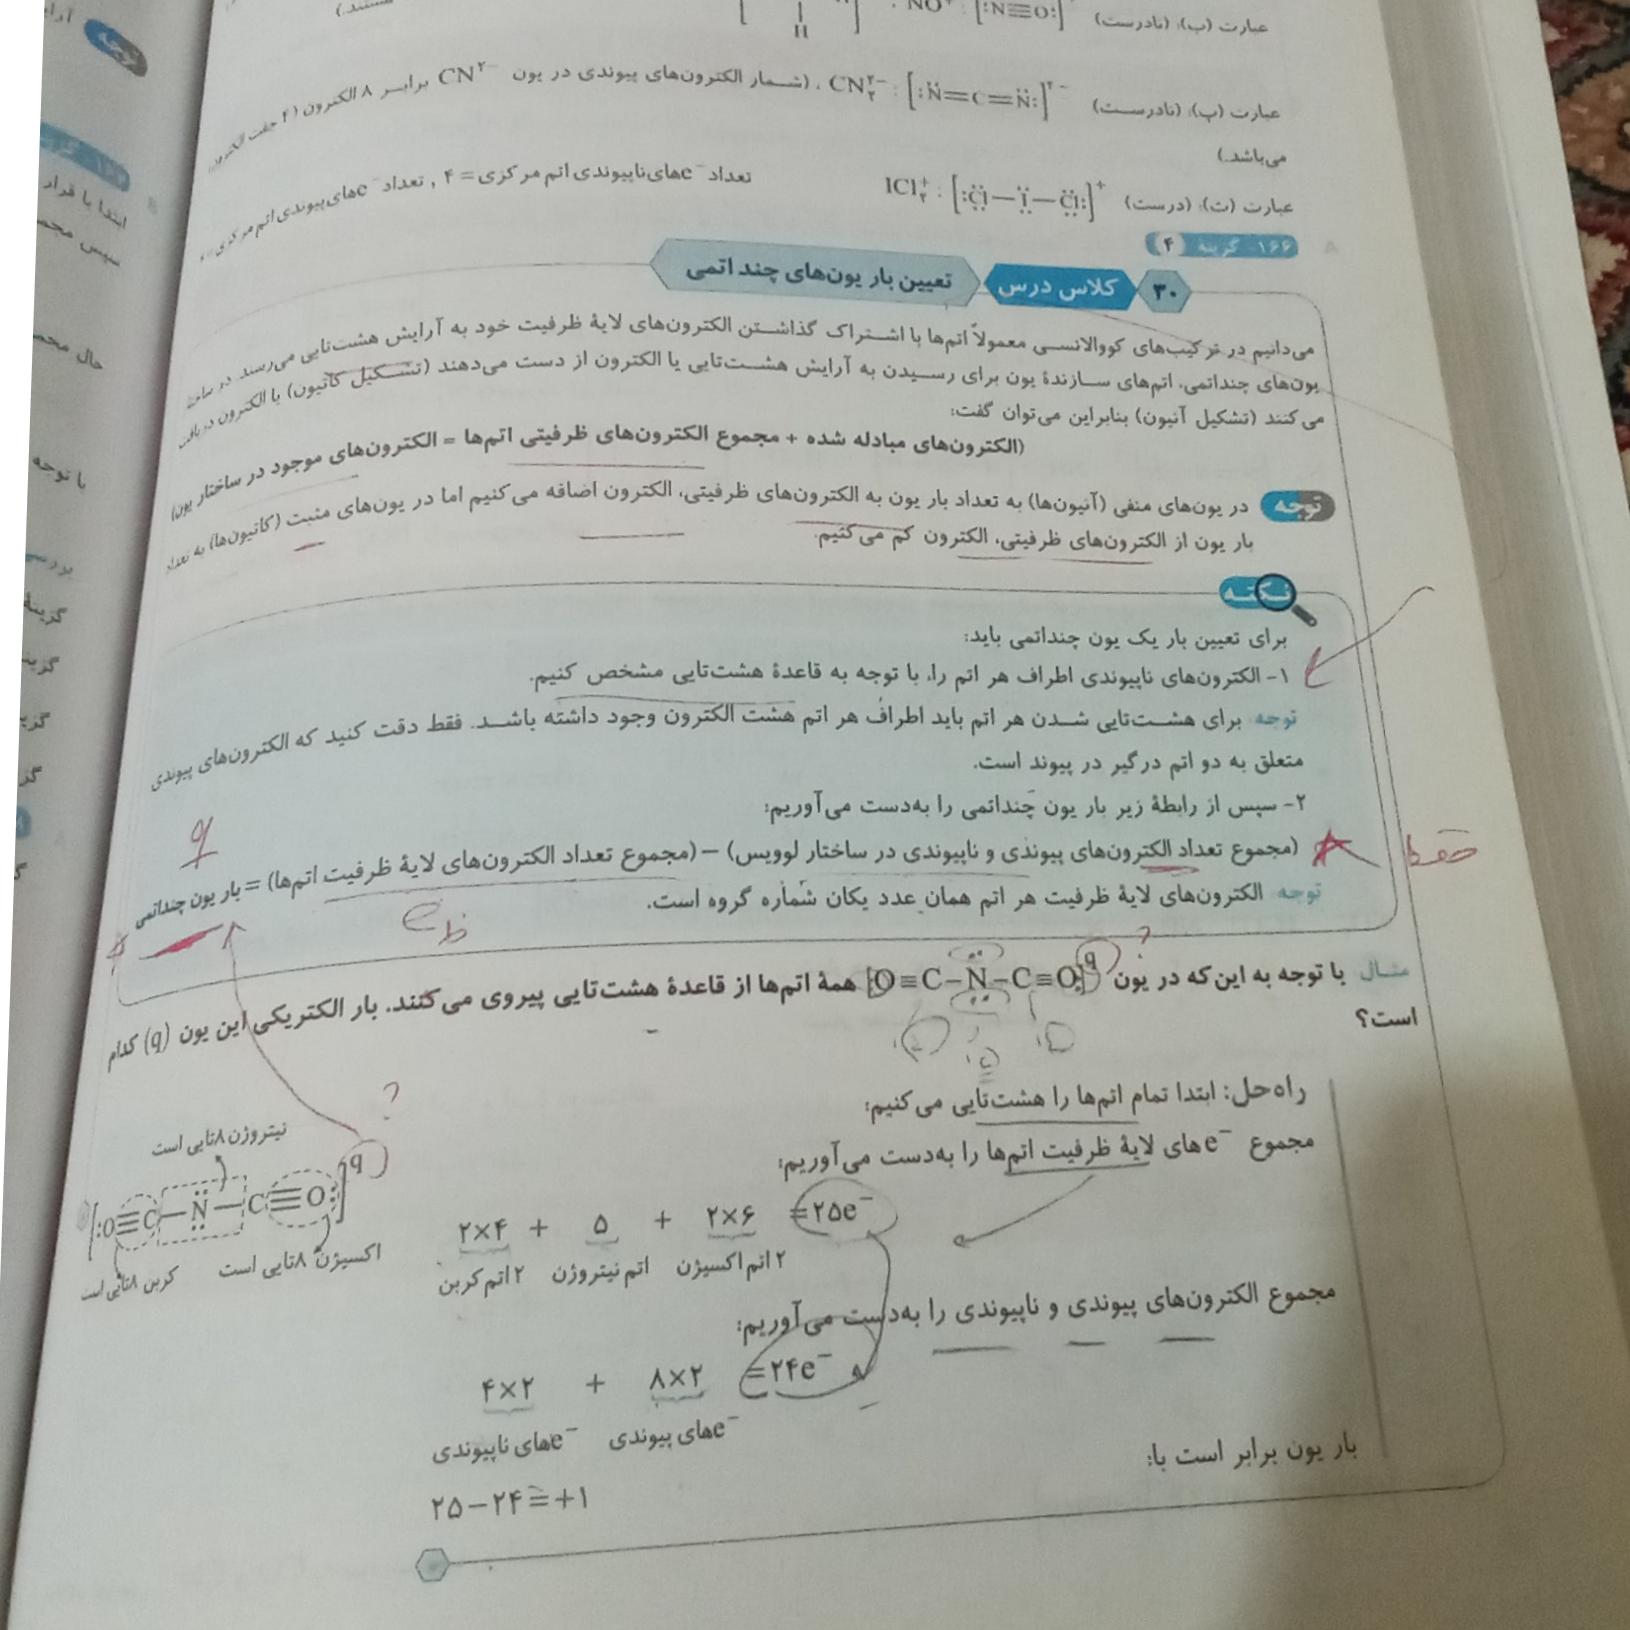 عبارت (ب): (نادرست) NO⁺ : [:N≡O:]
عبارت (پ): (نادرست) CN₂²⁻ : [:N̈=C=N̈:]²⁻ ، (شمار الکترون‌های پیوندی در یون CN²⁻ برابر ۸ الکترون (۴ جفت الکترون)
می‌باشد.)
عبارت (ت): (درست) ICl₂⁺ : [:C̈l—Ï—C̈l:]⁺ تعداد e⁻های ناپیوندی اتم مرکزی = ۴ , تعداد e⁻های پیوندی اتم مرکزی =
۱۶۶- گزینهٔ ۴
۳۰ کلاس درس تعیین بار یون‌های چند اتمی
می‌دانیم در ترکیب‌های کووالانسی معمولاً اتم‌ها با اشتراک گذاشتن الکترون‌های لایهٔ ظرفیت خود به آرایش هشت‌تایی می‌رسند. در ساخت
یون‌های چنداتمی، اتم‌های سازندهٔ یون برای رسیدن به آرایش هشت‌تایی یا الکترون از دست می‌دهند (تشکیل کاتیون) یا الکترون دریافت
می‌کنند (تشکیل آنیون) بنابراین می‌توان گفت:
(الکترون‌های مبادله شده + مجموع الکترون‌های ظرفیتی اتم‌ها = الکترون‌های موجود در ساختار یون)
توجه در یون‌های منفی (آنیون‌ها) به تعداد بار یون به الکترون‌های ظرفیتی، الکترون اضافه می‌کنیم اما در یون‌های مثبت (کاتیون‌ها) به تعداد
بار یون از الکترون‌های ظرفیتی، الکترون کم می‌کنیم.
نکته
برای تعیین بار یک یون چنداتمی باید:
۱- الکترون‌های ناپیوندی اطراف هر اتم را، با توجه به قاعدهٔ هشت‌تایی مشخص کنیم.
توجه برای هشت‌تایی شدن هر اتم باید اطراف هر اتم هشت الکترون وجود داشته باشد. فقط دقت کنید که الکترون‌های پیوندی
متعلق به دو اتم درگیر در پیوند است.
۲- سپس از رابطهٔ زیر بار یون چنداتمی را به‌دست می‌آوریم:
q
(مجموع تعداد الکترون‌های پیوندی و ناپیوندی در ساختار لوویس) – (مجموع تعداد الکترون‌های لایهٔ ظرفیت اتم‌ها) = بار یون چنداتمی
حفظ
توجه الکترون‌های لایهٔ ظرفیت هر اتم همان عدد یکان شماره گروه است.
مثال با توجه به این‌که در یون [O≡C–N–C≡O]q همهٔ اتم‌ها از قاعدهٔ هشت‌تایی پیروی می‌کنند. بار الکتریکی این یون (q) کدام
است؟
راه‌حل: ابتدا تمام اتم‌ها را هشت‌تایی می‌کنیم:
مجموع e⁻های لایهٔ ظرفیت اتم‌ها را به‌دست می‌آوریم:
نیتروژن ۸تایی است
[:O≡C—N̈—C≡O:]q
کربن ۸تایی است اکسیژن ۸تایی است
۲×۴ + ۵ + ۲×۶ =۲۵e⁻
۲ اتم کربن اتم نیتروژن ۲ اتم اکسیژن
مجموع الکترون‌های پیوندی و ناپیوندی را به‌دست می‌آوریم:
۴×۲ + ۸×۲ =۲۴e⁻
e⁻های ناپیوندی e⁻های پیوندی
بار یون برابر است با:
۲۵–۲۴=+۱